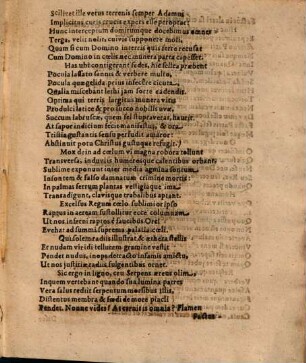 Scilicet ille vetus terrenis semper Adamus
Implicitus curis crucis expers esse peroptat;
Hunc interceptum domitumque docebimus omnes
Terga, velit nolit, cuivis supponere moli.
Quum si cum Domino interea quis ferre recusat
Cum Domino in cœlis nec inibi parta capisset.
Has ubi contigerant sedes, his fellea præbent
Pocula lassato sannis & verbere multo,
Pocula quæ gelida prius infecere cicuta.
Qualia miscebant leihi jam sorte cadendis.
Optima qui terris largitus munera vitis
Producit lætice & pro succo nobilis uvæ,
Succum labruscæ, quem fel stupraverat, hausit,
At sapor indicium fecit manifestus, & ora
Tristia gustantis sensu perfudit amaror:
Abstinuit pota Christus gustuque refugit.
Mox dein ad cœlum vi magna robora tollunt
Transversa, indutis humerisque calentibus orbant,
Sublime exponunt inter media agmina contum,
Insontem & falso damnatum crimine mortis:
In palmas ferrum plantas vestigiaque ima
Transadigunt, clavisque trabalibus aptant.
Excelsus Regum cœlo sublimior ipso
Raptus in aëream sustollitur ecce columnam
Ut nos inferni raptos è faucibus Orci
Evehat ad summi suprema palatia cœli.
Qui solem radiis illustrat & æthera stellis
Et nudam vividi tellurem gramine vestit
Pendet nudus, inops detracto infamis amictu,
Ut nos justitiæ radiis fulgentibus ornet.
Sic ergo in ligno, ceu Serpens æreus olim,
Inquem vertebant quando sua lumina patres
Vera salus rediit serpentum morsibus illis,
Distentus membra & fœdi de more piacli
Pendet. Nonne vides? Aeternus omnia? Flamen
Factus